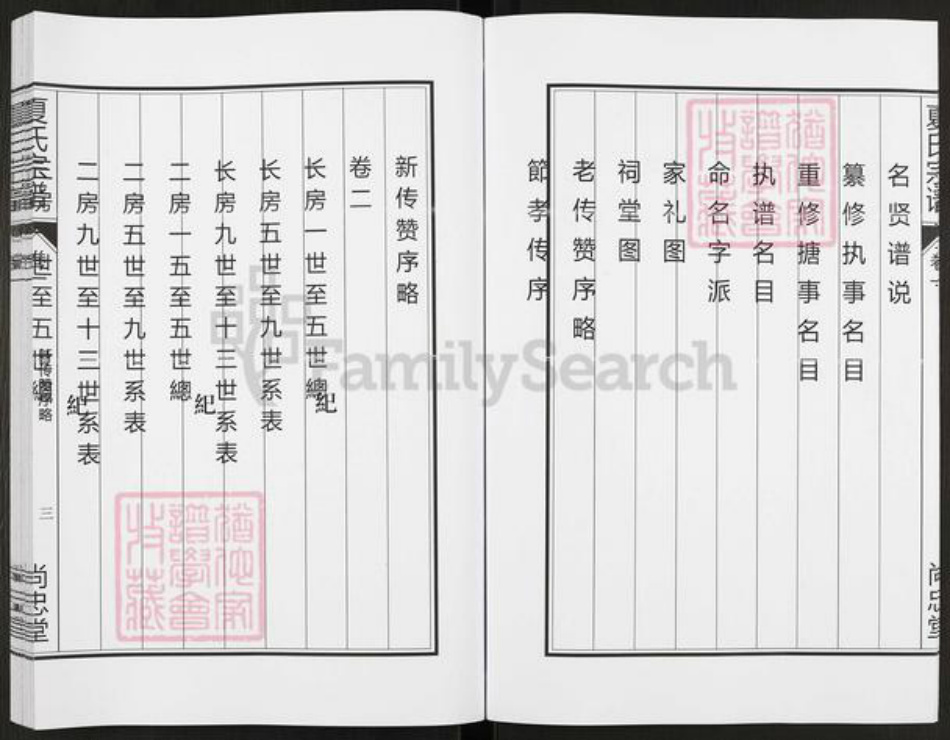 名贤谱说
纂修执事名目
重修搪事名目
执谱名目
命名字派
家礼图
祠堂图
老传赞序略
節孝传序
新传赞序略
卷二
长房一世至五世總紀
长房五世至九世系表
长房九世至十三世系表
二房一五至五世總紀
二房五世至九世系表
二房九世至十三世系表
紀
夏氏宗谱
三
尚忠堂
夏氏宗谱
尚忠堂
FamilySearch